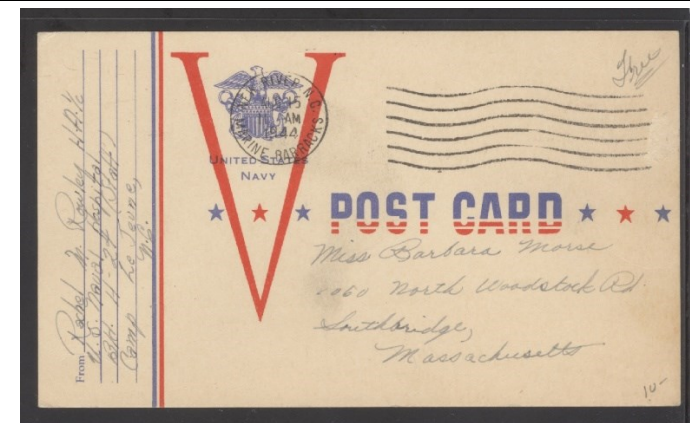 From
U.S. Naval Hospital
Camp Le Jeune,
N.C.
NEW RIVER, N.C.
15
AM
1944
MARINE BARRACKS
UNITED STATES
NAVY
V
Free
POST CARD
Miss Barbara Morse
1060 North Woodstock Rd.
Southbridge,
Massachusetts
10-